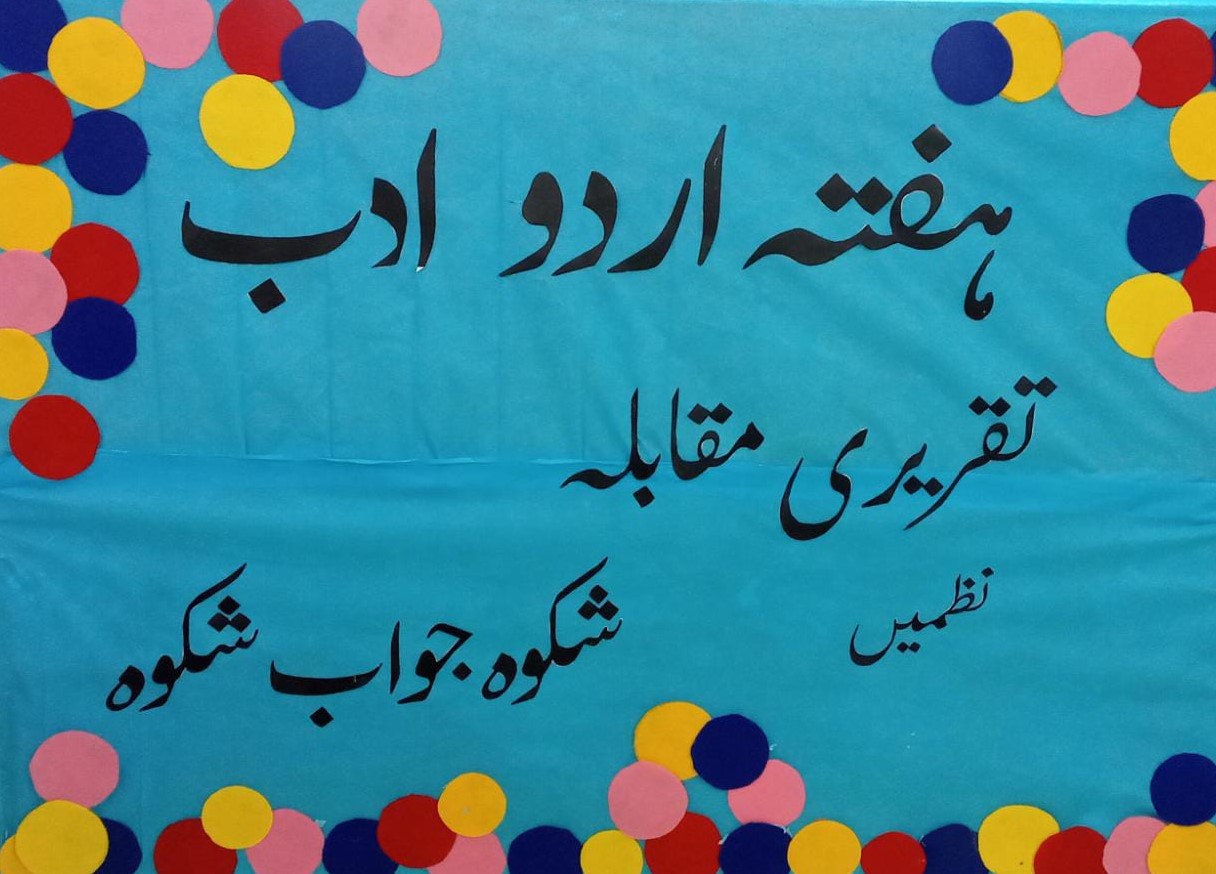 ہفتہ اردو ادب
تقریری مقابلہ
نظمیں
شکوہ جواب شکوہ